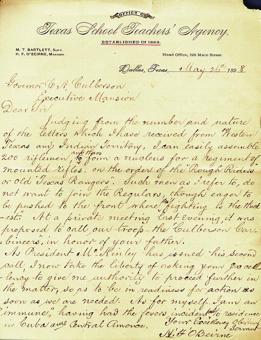 OFFICE OF
Texas School Teachers' Agency.
ESTABLISHED IN 1883.
M. T. BARTLETT, Supt.
P. F. O'BEIRNE, Manager
Head Office, Main Street
Dallas, Texas, May 24th 1898
Governor C. A. Culberson
Executive Mansion
Dear Sir:
Judging from the number and nature
of the letters which I have received from Western
Texas and Indian Territory, I can easily assemble
200 riflemen, to form a nucleus for a regiment of
mounted rifles, on the order of the Rough Riders
or old Texas Rangers. Such men as I refer to, do
not want to join the Regulars, though eager to
be pushed to the front where fighting is the
est. At a private meeting last evening, it was
proposed to call our troop the Culberson Car-
bineers, in honor of your father.
As President McKinley has issued his second
call, I now take the liberty of asking your Excel-
lency to give me authority to proceed further in
the matter, so as to be in readiness for action as
soon as we are needed. As for myself I am an
immune, having had the fevers incident to residence
in Cuba and Central America.
Your Excellency's
Servant